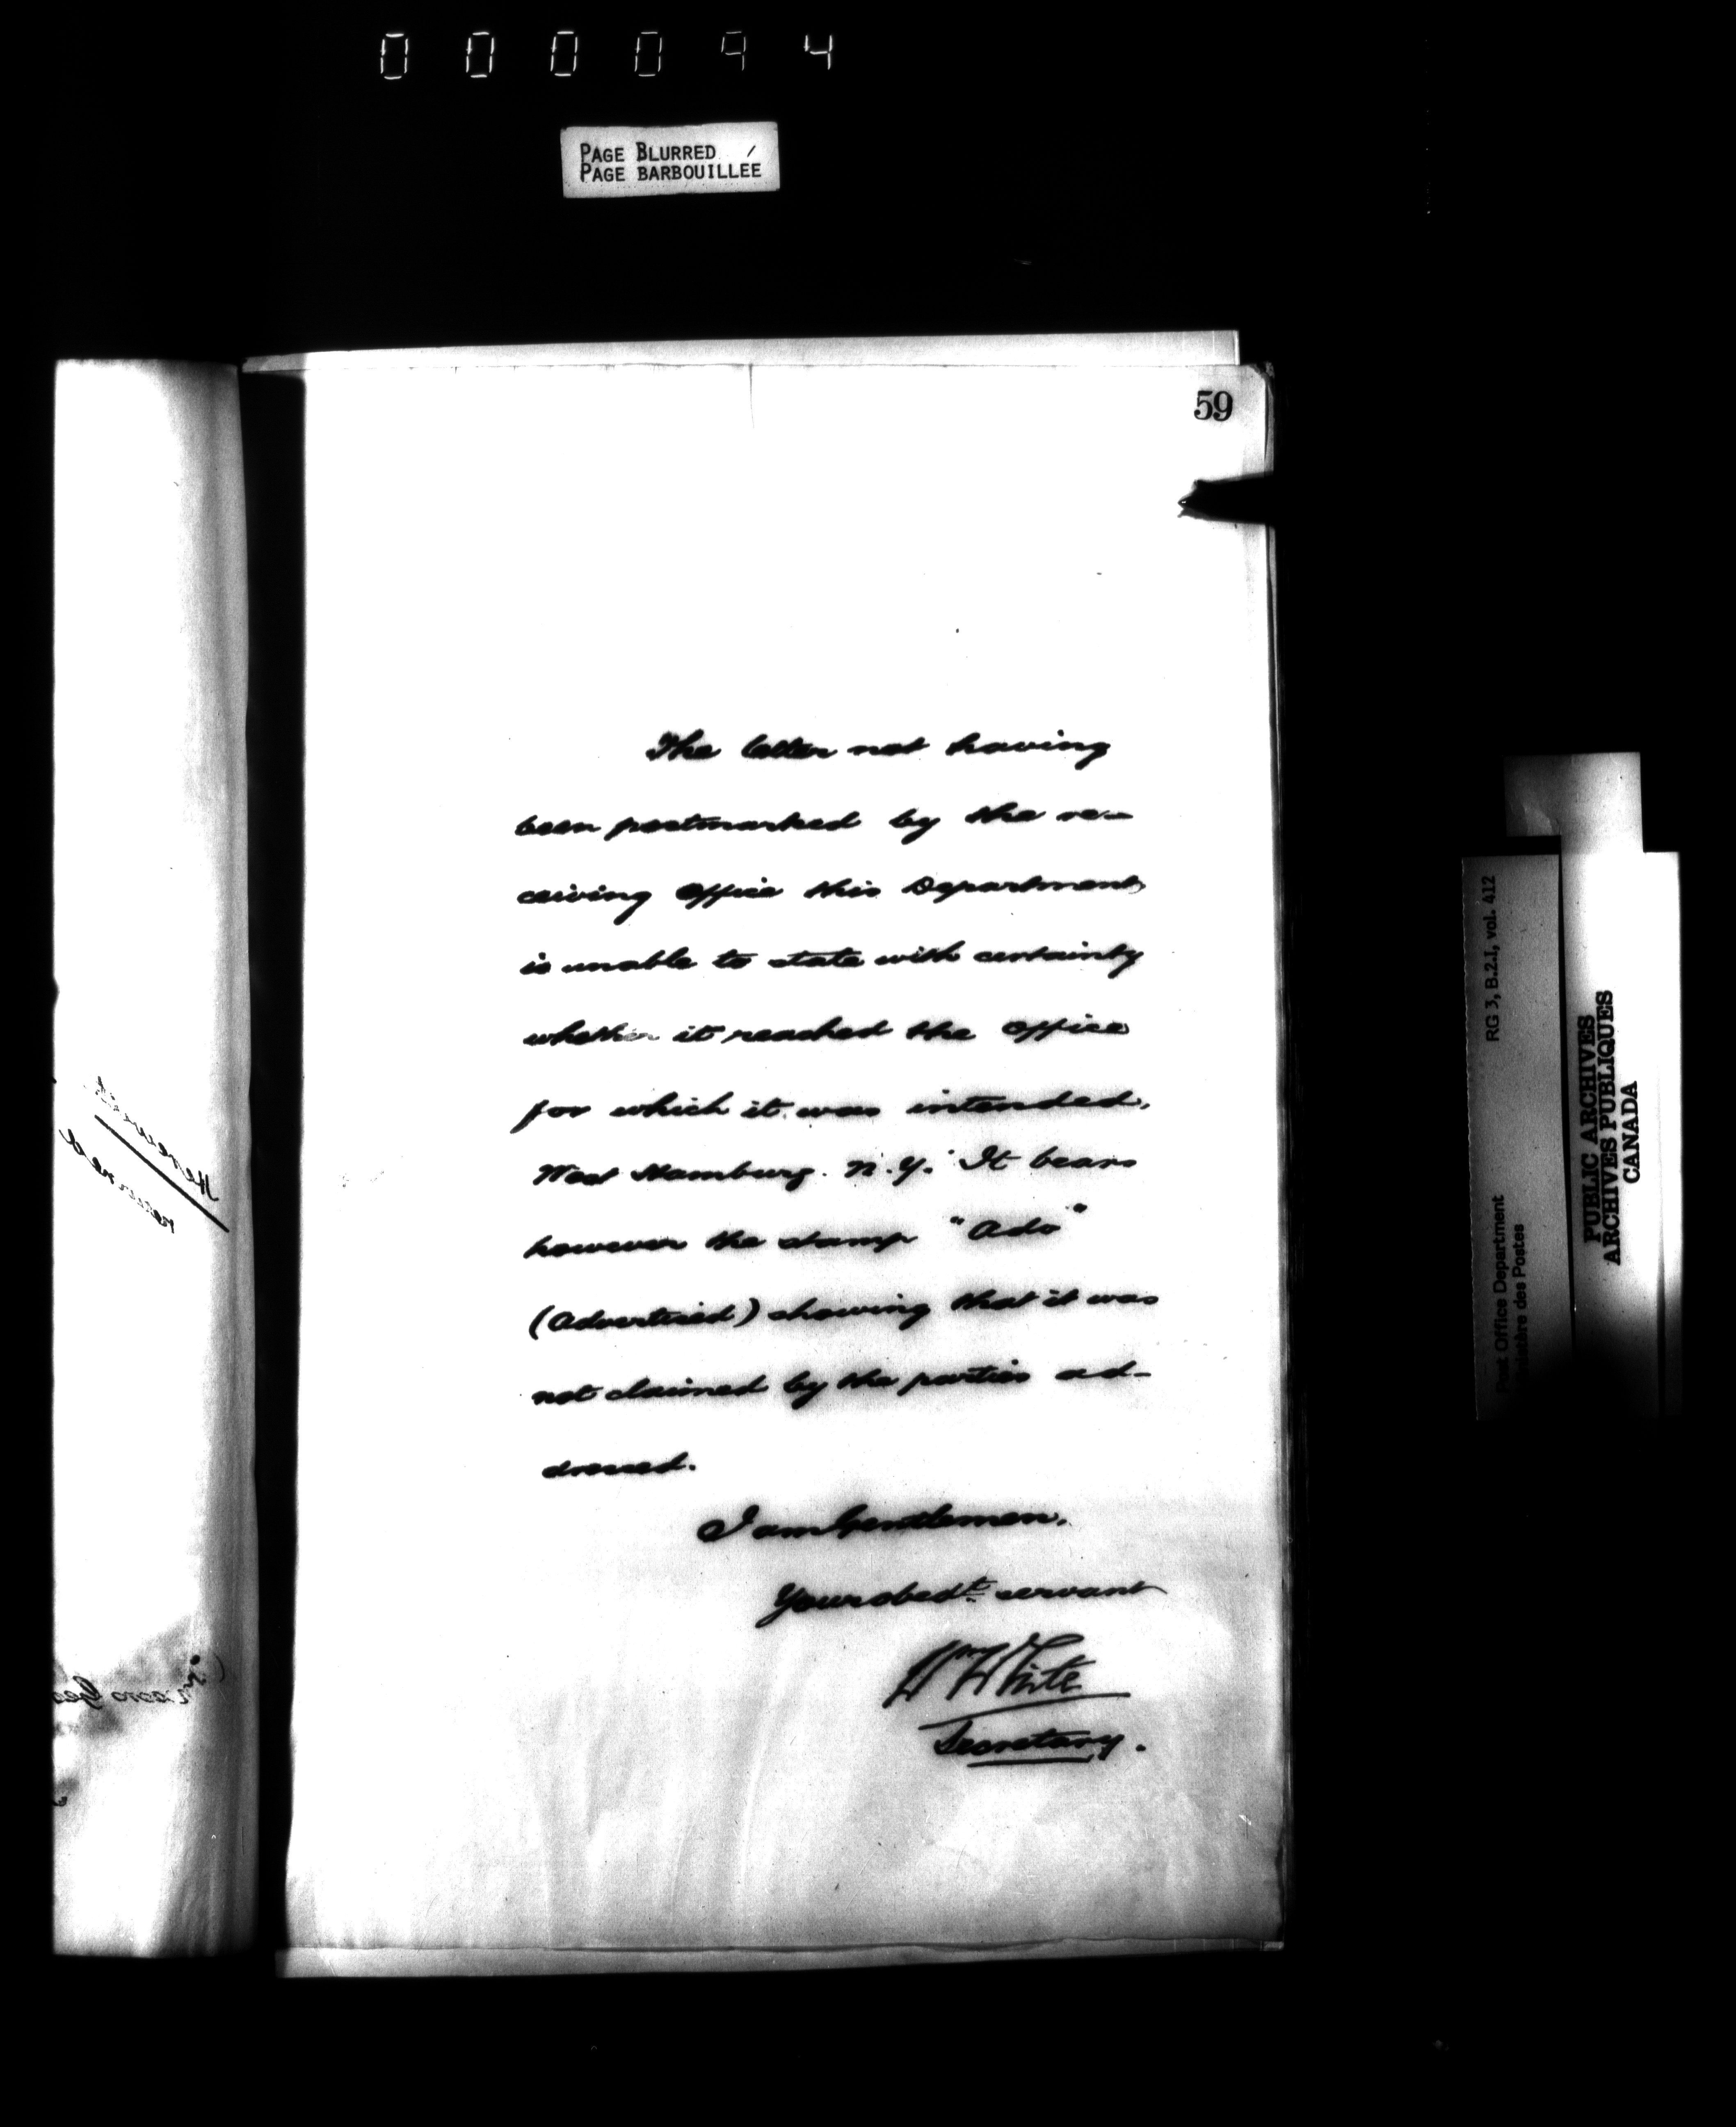 000094
PAGE BLURRED
PAGE BARBOUILLÉE
59
The letter not having
been postmarked by the re-
ceiving Office this Department
is unable to state with certainty
whether it reached the Office
for which it was intended,
West Hamburg. N.Y. It bears
however the stamp "Ads"
(Advertised) showing that it was
not claimed by the parties ad-
dressed.
I am Gentlemen,
Your obedt. servant
Wm White
Secretary.
Herewith
returned
RG 3, B.2.1, vol. 412
Post Office Department
des Postes
PUBLIC ARCHIVES
ARCHIVES PUBLIQUES
CANADA